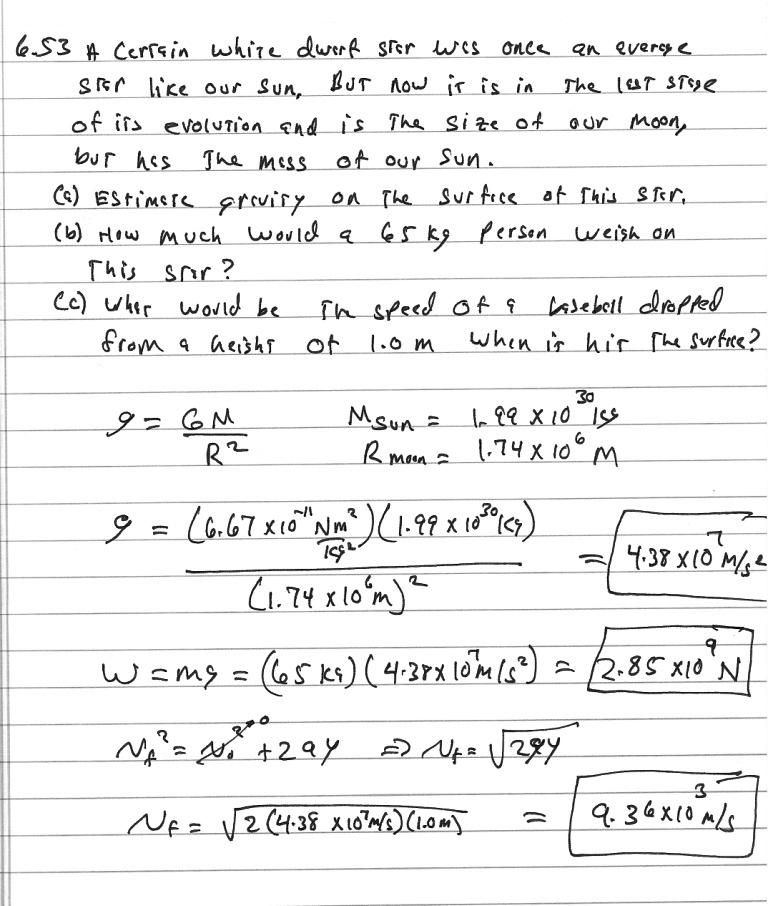 6.53 A certain white dwarf star was once an average
star like our sun, But now it is in the last stage
of its evolution and is the size of our moon,
but has the mass of our sun.
(a) Estimate gravity on the surface of this star.
(b) How much would a 65 kg person weigh on
This star?
(c) What would be the speed of a baseball dropped
from a height of 1.0 m when it hit the surface?
g = GM / R² M sun = 1.99 x 10³⁰ kg
R moon = 1.74 x 10⁶ M
g = (6.67 x 10⁻¹¹ Nm²/kg²)(1.99 x 10³⁰ kg) / (1.74 x 10⁶ m)² = 4.38 x 10⁷ m/s²
W = mg = (65 kg)(4.38 x 10⁷ m/s²) = 2.85 x 10⁹ N
v_f² = v₀²→0 + 2ay ⇒ v_f = √2gy
v_f = √2(4.38 x 10⁷ m/s)(1.0m) = 9.36 x 10³ m/s